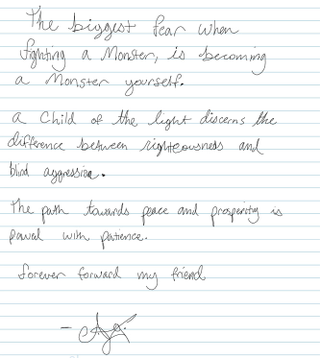 The biggest fear when
fighting a Monster, is becoming
a Monster yourself.
a Child of the light discerns the
difference between righteousness and
blind aggression.
The path towards peace and prosperity is
paved with patience.
forever forward my friend
-